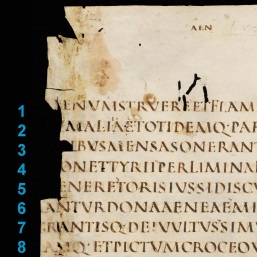 AEN
1 ENVMSTRVEREETFLAM
2 MALIAETOTIDEMQ·PAR
3 IBVSMENSASONERANT
4 ONETTYRIIPERLIMINA
5 ENERETORISIVSSIDISCV
6 ANTVRDONAAENEAEMI
7 RANTISQ·DEIVVLTVSSIM
8 AMQ·ETPICTVMCROCEOV